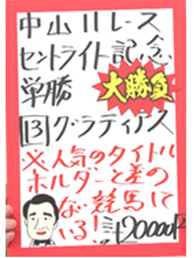 中山11レース
セントライト記念
単勝
大勝負
13グラティアス
※人気のタイトル
ホルダーと差の
ない競馬して
いる!
計20000円